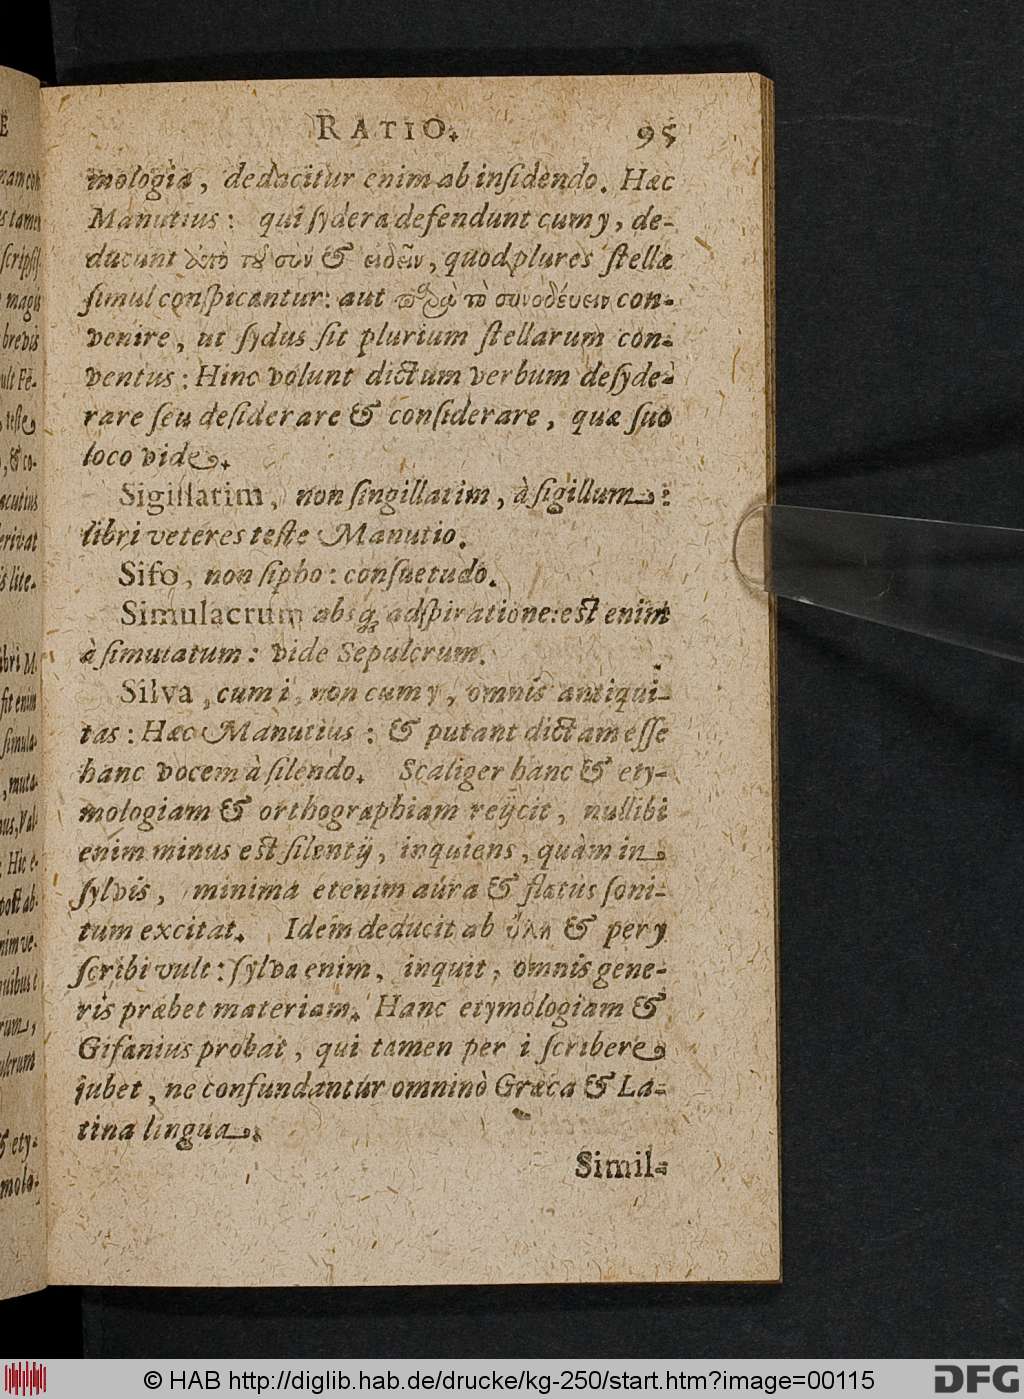 RATIO. 95
mologia, deducitur enim ab insidendo. Hæc
Manutius: qui sydera defendunt cum y, de-
ducunt ἀπὸ τῦ σὺν & εἰδεῖν, quod plures stellæ
simul conspicantur: aut τὸ συνοδέυειν con-
venire, ut sydus sit plurium stellarum con-
ventus: Hinc volunt dictum verbum desyde-
rare seu desiderare & considerare, quæ suo
loco vide.
Sigillatim, non singillatim, à sigillum:
libri veteres teste Manutio.
Sifo, non sipho: consuetudo.
Simulacrum absq; adspiratione: est enim
à simulatum: vide Sepulcrum.
Silva, cum i, non cum y, omnis antiqui-
tas: Hæc Manutius: & putant dictam esse
hanc vocem à silendo. Scaliger hanc & ety-
mologiam & orthographiam reijcit, nullibi
enim minus est silentij, inquiens, quàm in
sylvis, minima etenim aura & flatus soni-
tum excitat. Idem deducit ab ὕλη & per y
scribi vult: sylva enim, inquit, omnis gene-
ris præbet materiam. Hanc etymologiam &
Gifanius probat, qui tamen per i scribere
jubet, ne confundantur omninò Græca & La-
tina lingua.
Simil-
E
nam con
us tamen
scripsis
magis
brevis
ult Fe-
, teste
, & co-
acutius
erivat
is lite-
ibri M.
sit enim
simula-
, muta-
nus, Val
Hic e-
post ab-
nim ve-
nibus
rum,
ulcrum
& ety-
mola-
© HAB http://diglib.hab.de/drucke/kg-250/start.htm?image=00115
DFG